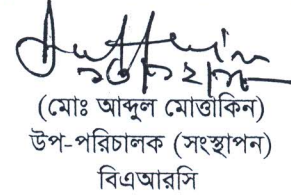 (মোঃ আব্দুল মোত্তাকিন)
উপ-পরিচালক (সংস্থাপন)
বিএআরসি